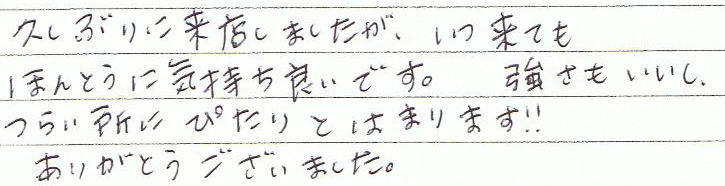 久しぶりに来店しましたが、いつ来ても
ほんとうに気持ち良いです。 強さもいいし、
つらい所にぴたりとはまります!!
ありがとうございました。